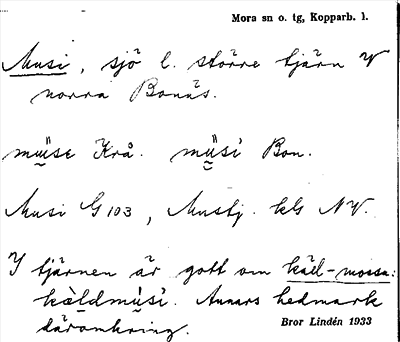 Mora sn o. tg, Kopparb. l.
Musi, sjö l. större tjärn V
norra Bonäs.
mṳ̈se Krå. mṳ̈si Bon.
Musi G 103, Musbj. kls NV.
I tjärnen är gott om käd-mossa:
kä̀ldmùsi. Annars hedmark
däromkring.
Bror Lindén 1933